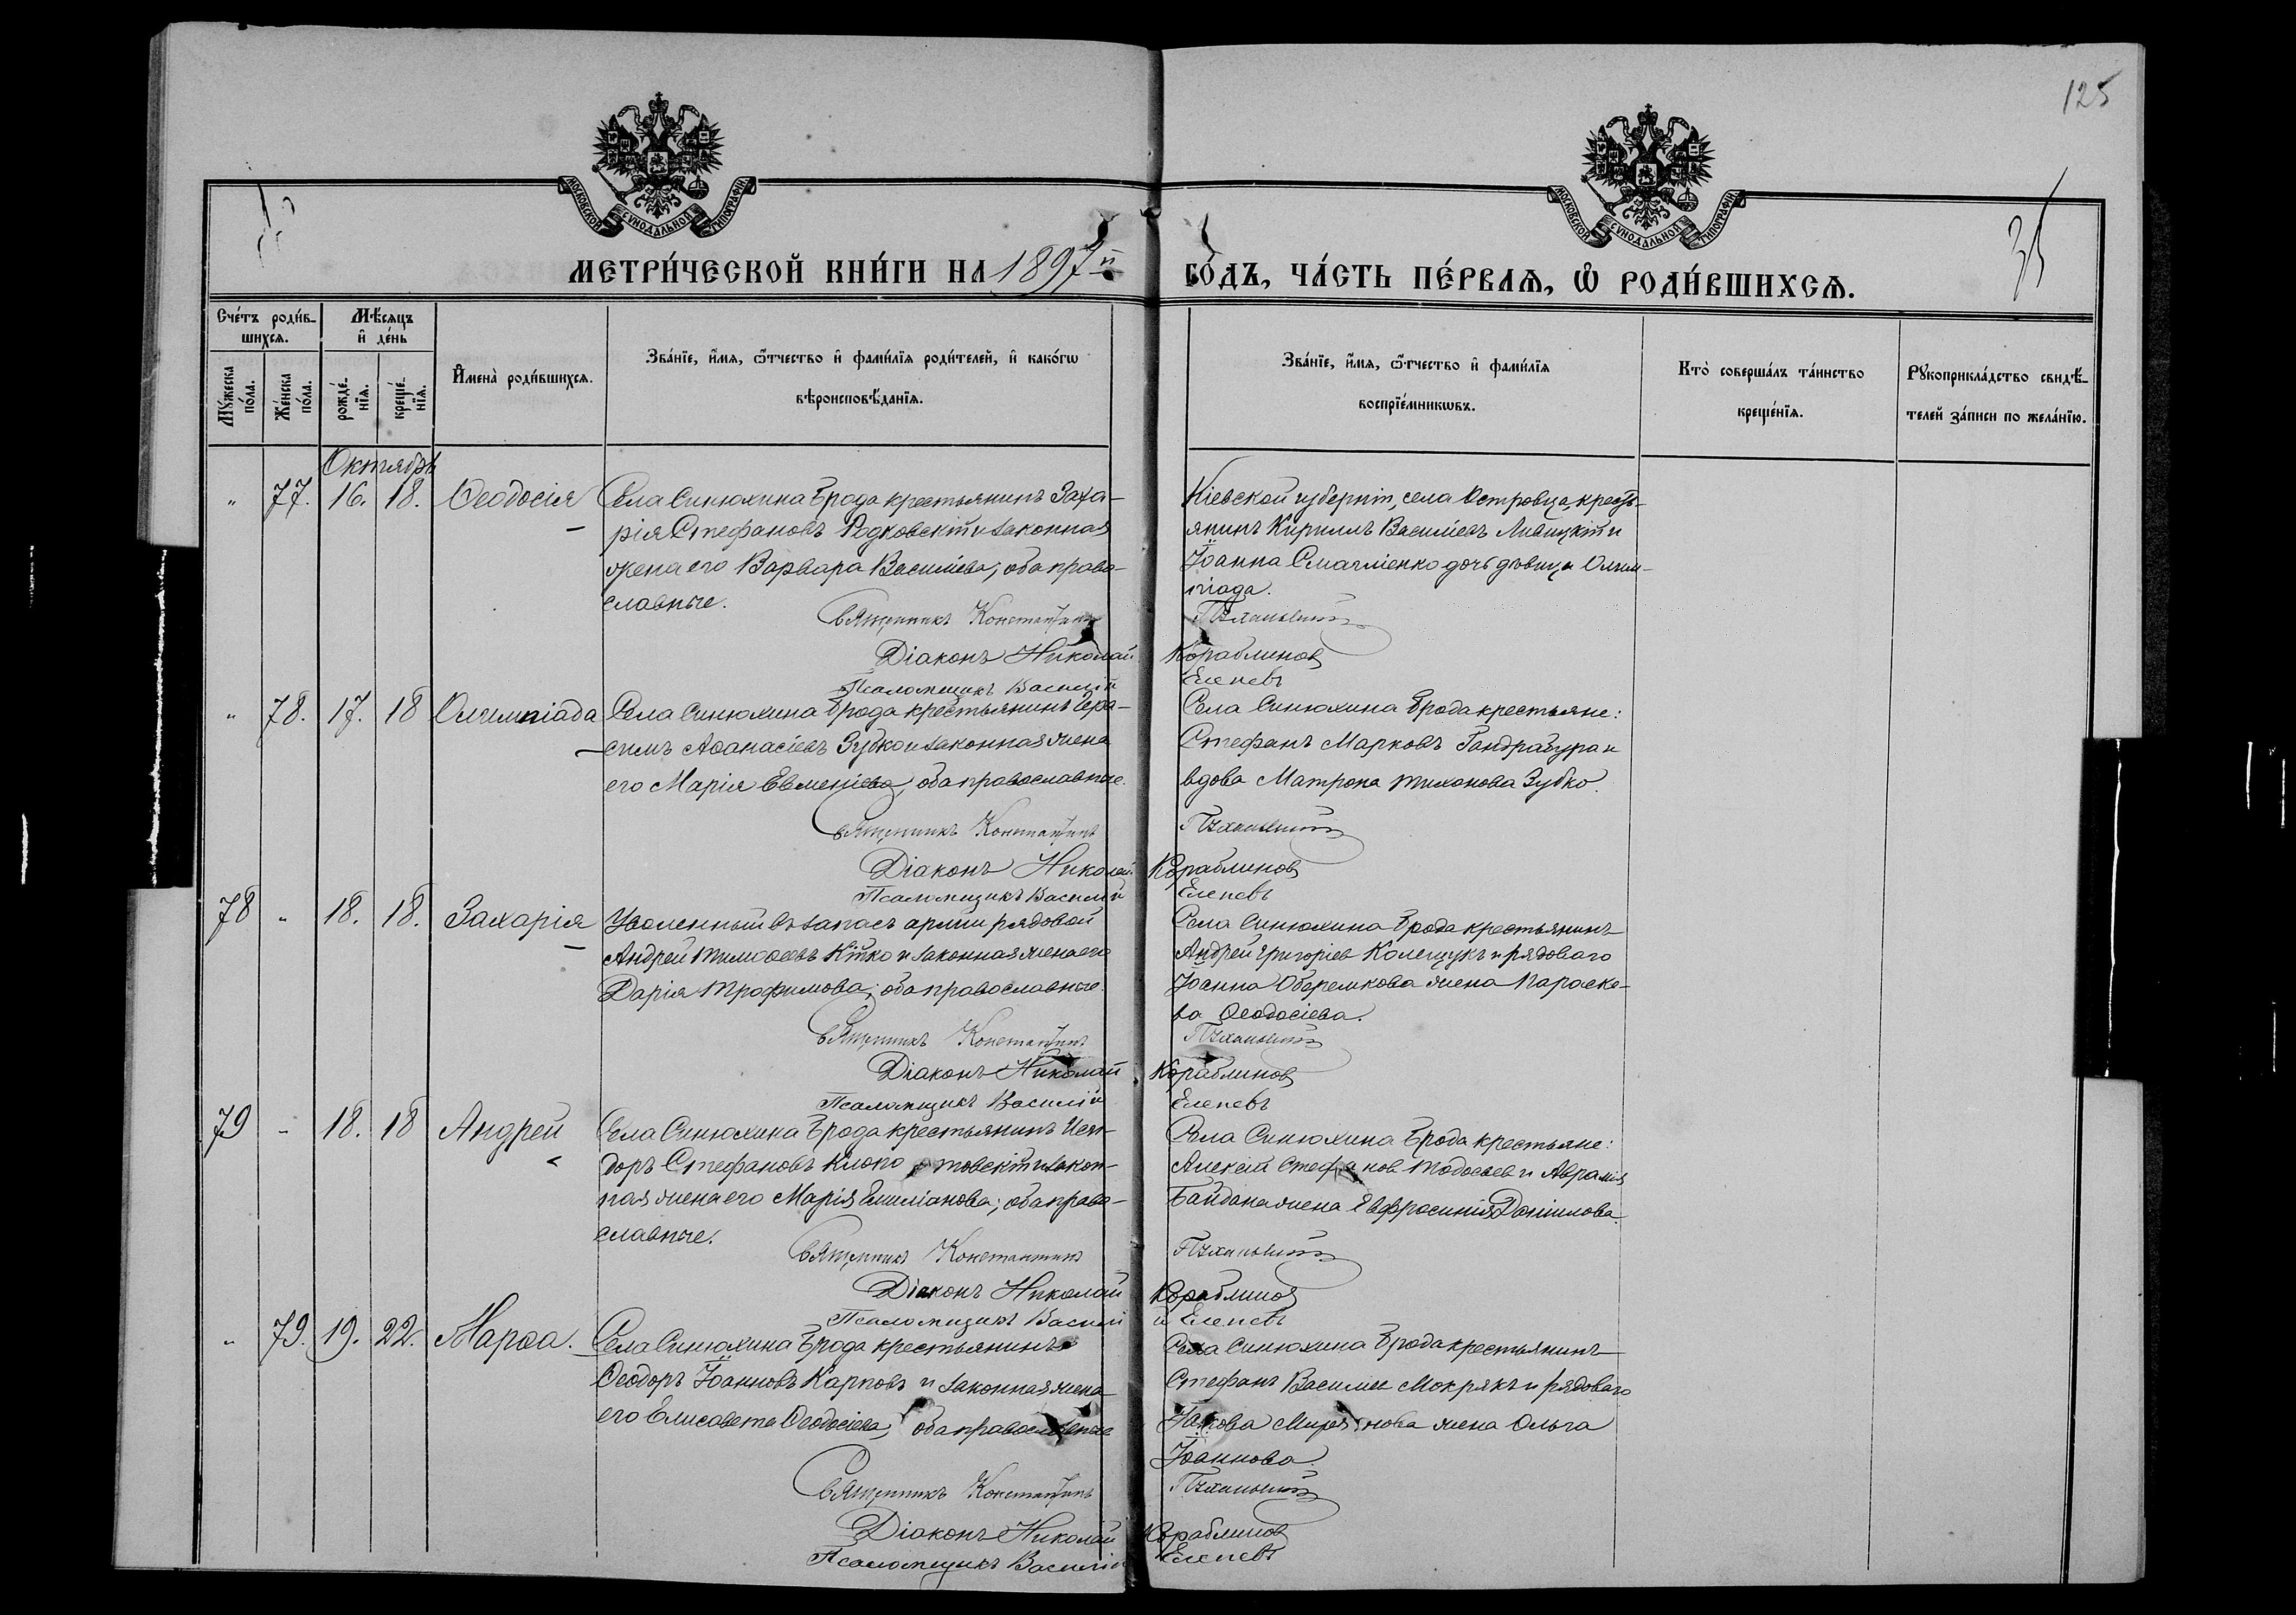 125
35
МОСКОВСКОЙ СѴНОДАЛЬНОЙ ТИПОГРАФІИ.
МОСКОВСКОЙ СѴНОДАЛЬНОЙ ТИПОГРАФІИ.
МЕТРИ́ЧЕСКОЙ КНИ́ГИ НА 1897й ГО́ДЪ, ЧА́СТЬ ПЕ́РВАѦ, Ѽ РОДИ́ВШИХСѦ.
Сче́тъ роди́в-
шихсѧ.
Мꙋ́жеска
по́ла.
Же́нска
по́ла.
Мѣ́сѧцъ
и҆ де́нь
рожде́-
нїѧ.
креще́-
нїѧ.
И҆мена̀ роди́вшихсѧ.
Зва́нїе, и҆́мѧ, ѻ҆́тчество и҆ фами́лїѧ роди́телей, и҆ како́гѡ
вѣроисповѣ́данїѧ.
Зва́нїе, и҆́мѧ, ѻ҆́тчество и҆ фами́лїѧ
воспрїе́мникѡвъ.
Кто̀ соверша́лъ та́инство
креще́нїѧ.
Рꙋкоприкла́дство свидѣ́-
телей за́писи по жела́нїю.
Октябрь
" 77. 16. 18. Ѳеодосія
Села Синюхина Брода крестьянинъ Заха-
рія Стефановъ Родковскій и законная
жена его Варвара Василіева; оба право-
славные.
Кіевской губерніи, села Островца, кресть-
янинъ Кириллъ Василіевъ и
Іоанна дочь дѣвица Олим-
піада.
Священникъ Константинъ
Діаконъ Николай Кораблиновъ
Псаломщикъ Василій Еленевъ
" 78. 17. 18 Олимпіада
Села Синюхина Брода крестьянинъ Гера-
симъ Аѳанасіевъ Зубко и законная жена
его Марія Евменіева, оба православные.
Села Синюхина Брода крестьяне:
Стефанъ Марковъ Гандрабура и
вдова Матрона Тихонова Зубко.
Священникъ Константинъ
Діаконъ Николай Кораблиновъ
Псаломщикъ Василій Еленевъ
78 " 18. 18. Захарія
Уволенный въ запасъ арміи рядовой
Андрей Тимоѳеевъ Кійко и законная жена его
Дарія Трофимова; оба православные.
Села Синюхина Брода крестьянинъ
Андрей Григоріев Колещукъ и рядоваго
Іоанна Оберемкова жена Параске-
ва Ѳеодосіева.
Священникъ Константинъ
Діаконъ Николай Кораблиновъ
Псаломщикъ Василій Еленевъ
79 " 18. 18 Андрей
Села Синюхина Брода крестьянинъ Иси-
доръ Стефановъ и закон-
ная жена его Марія Емиліанова; оба право-
славные.
Села Синюхина Брода крестьяне:
Алексій Стефанов и Аврамія
Байдана жена Евфросинія Даніилова.
Священникъ Константинъ
Діаконъ Николай Кораблиновъ
Псаломщикъ Василій Еленевъ
" 79. 19. 22. Марѳа.
Села Синюхина Брода крестьянинъ
Ѳеодоръ Іоанновъ Карповъ и законная жена
его Елисавета Ѳеодосіева, оба православные
Села Синюхина Брода крестьянинъ
Стефанъ Василіев Мокрякъ и рядоваго
Іакова Миронова жена Ольга
Іоаннова.
Священникъ Константинъ
Діаконъ Николай Кораблиновъ
Псаломщикъ Василій Еленевъ